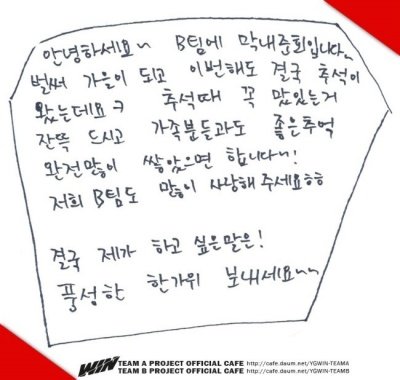 안녕하세요~ B팀에 막내준회입니다~
벌써 가을이 되고 이번해도 결국 추석이
왔는데요ㅋ 추석때 꼭 맛있는거
잔뜩 드시고 가족분들과도 좋은추억
완전많이 쌓았으면 합니다~!
저희 B팀도 많이 사랑해 주세요ㅎㅎ
결국 제가 하고 싶은말은!
풍성한 한가위 보내세요~~
WIN TEAM A PROJECT OFFICIAL CAFE http://cafe.daum.net/YGWIN-TEAMA
TEAM B PROJECT OFFICIAL CAFE http://cafe.daum.net/YGWIN-TEAMB